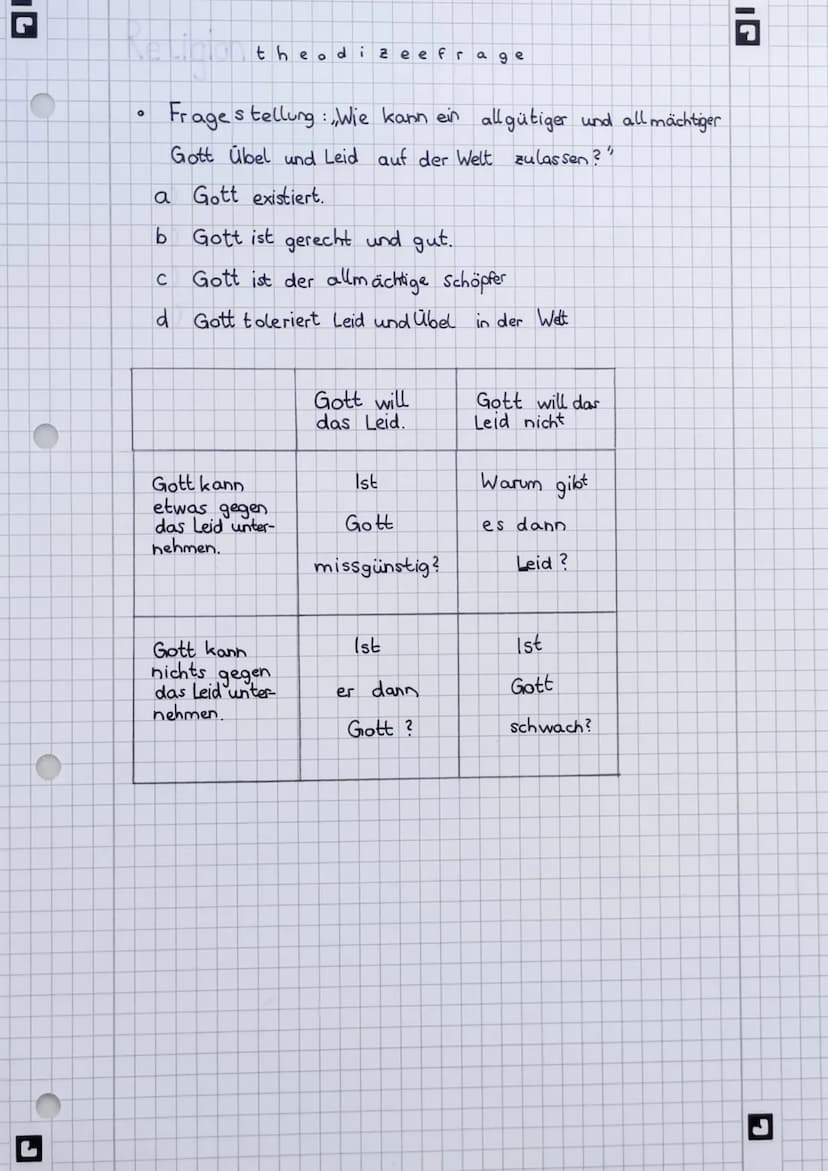 Religion theodizeefrage
Fragestellung: „Wie kann ein allgütiger und allmächtiger
Gott Übel und Leid auf der Welt zulassen?"
a Gott existiert.
b Gott ist gerecht und gut.
c Gott ist der allmächtige Schöpfer
d Gott toleriert Leid und Übel in der Welt
Gott will
das Leid.
Gott will das
Leid nicht
Gott kann
etwas gegen
das Leid unter-
nehmen.
Ist
Gott
missgünstig?
Warum gibt
es dann
Leid?
Gott kann
nichts gegen
das Leid unter-
nehmen.
Ist
er dann
Gott?
Ist
Gott
schwach?